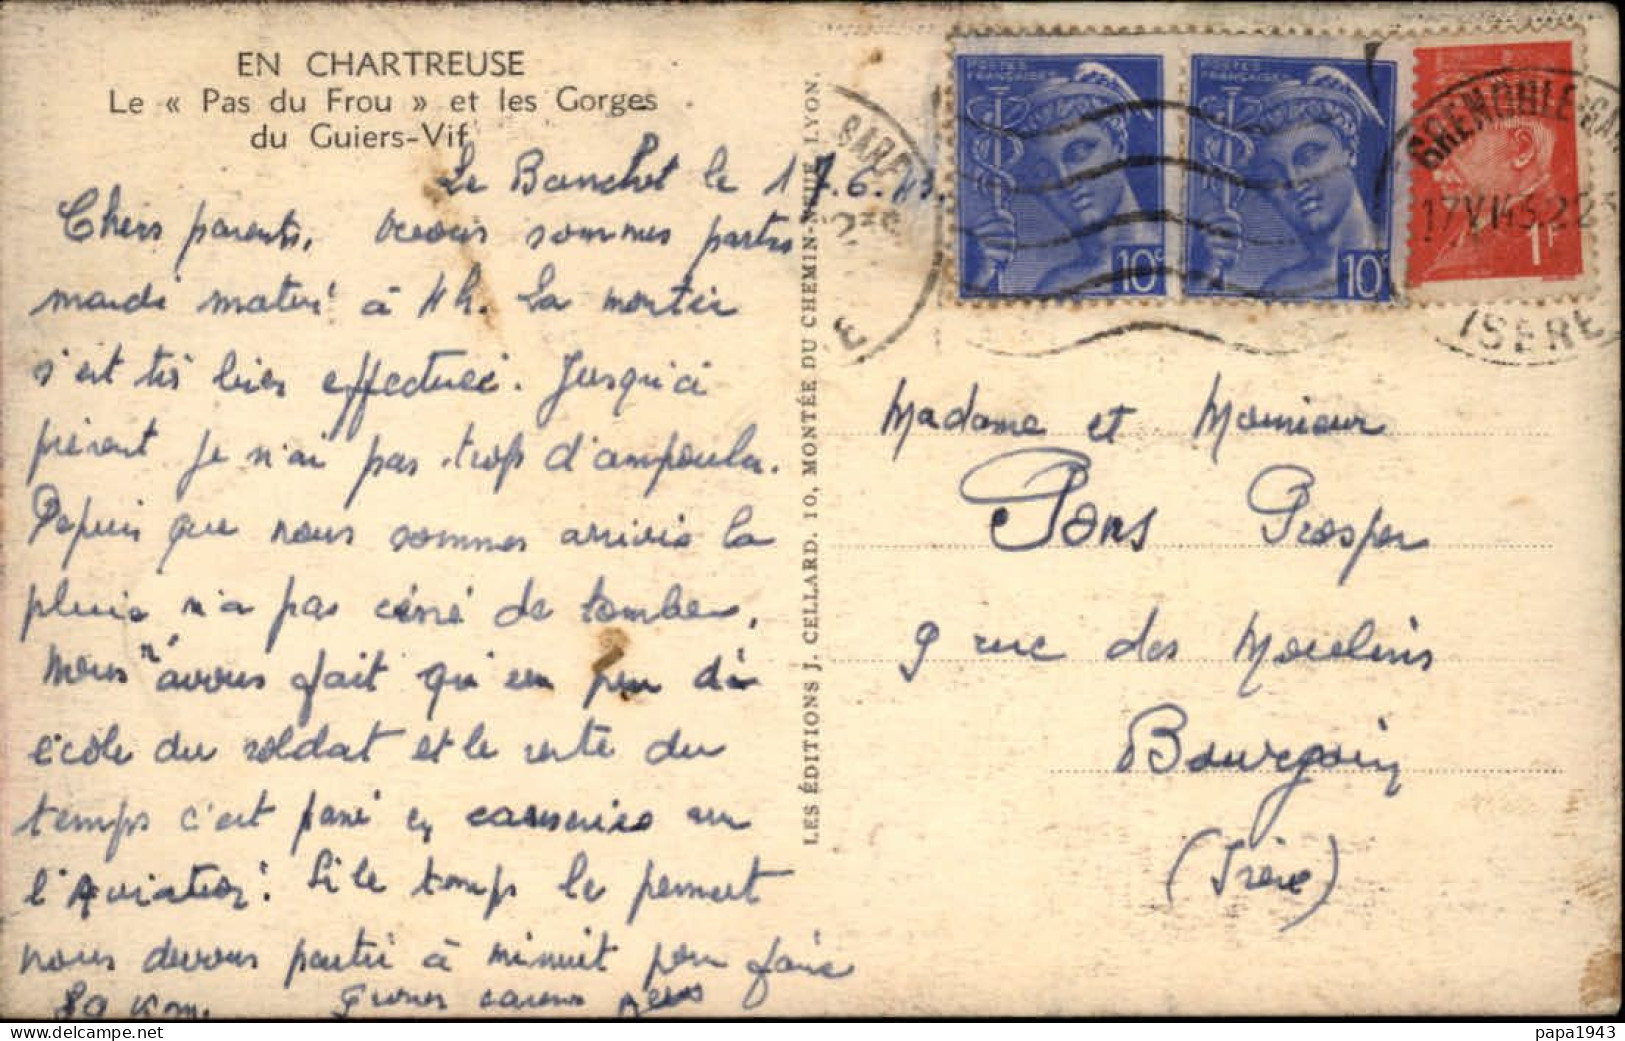 EN CHARTREUSE
Le « Pas du Frou » et les Gorges
du Guiers-Vif
Le Banchet le 17.6.43.
Chers parents, sommes partis
mardi matin à 4h. La montée
s'est très bien effectuée. Jusqu'à
présent je n'ai pas trop d'ampoules.
Depuis que nous sommes arrivés la
pluie n'a pas cessé de tomber.
Nous n'avons fait qu'un peu d'
école du soldat et le reste du
temps c'est passé en causeries sur
l'Aviation. Si le temps le permet
nous devons partir à minuit pour faire
Grosses caresses
LES ÉDITIONS J. CELLARD. 10, MONTÉE DU CHEMIN-NEUF, LYON.
GARE
E
POSTES
FRANÇAISES
10c
POSTES
FRANÇAISES
10c
1F
GRENOBLE-GARE
17 VI 43
ISÈRE
Madame et Monsieur
Pons Prosper
9 rue des Moulins
Bourgoin
(Isère)
papa1943